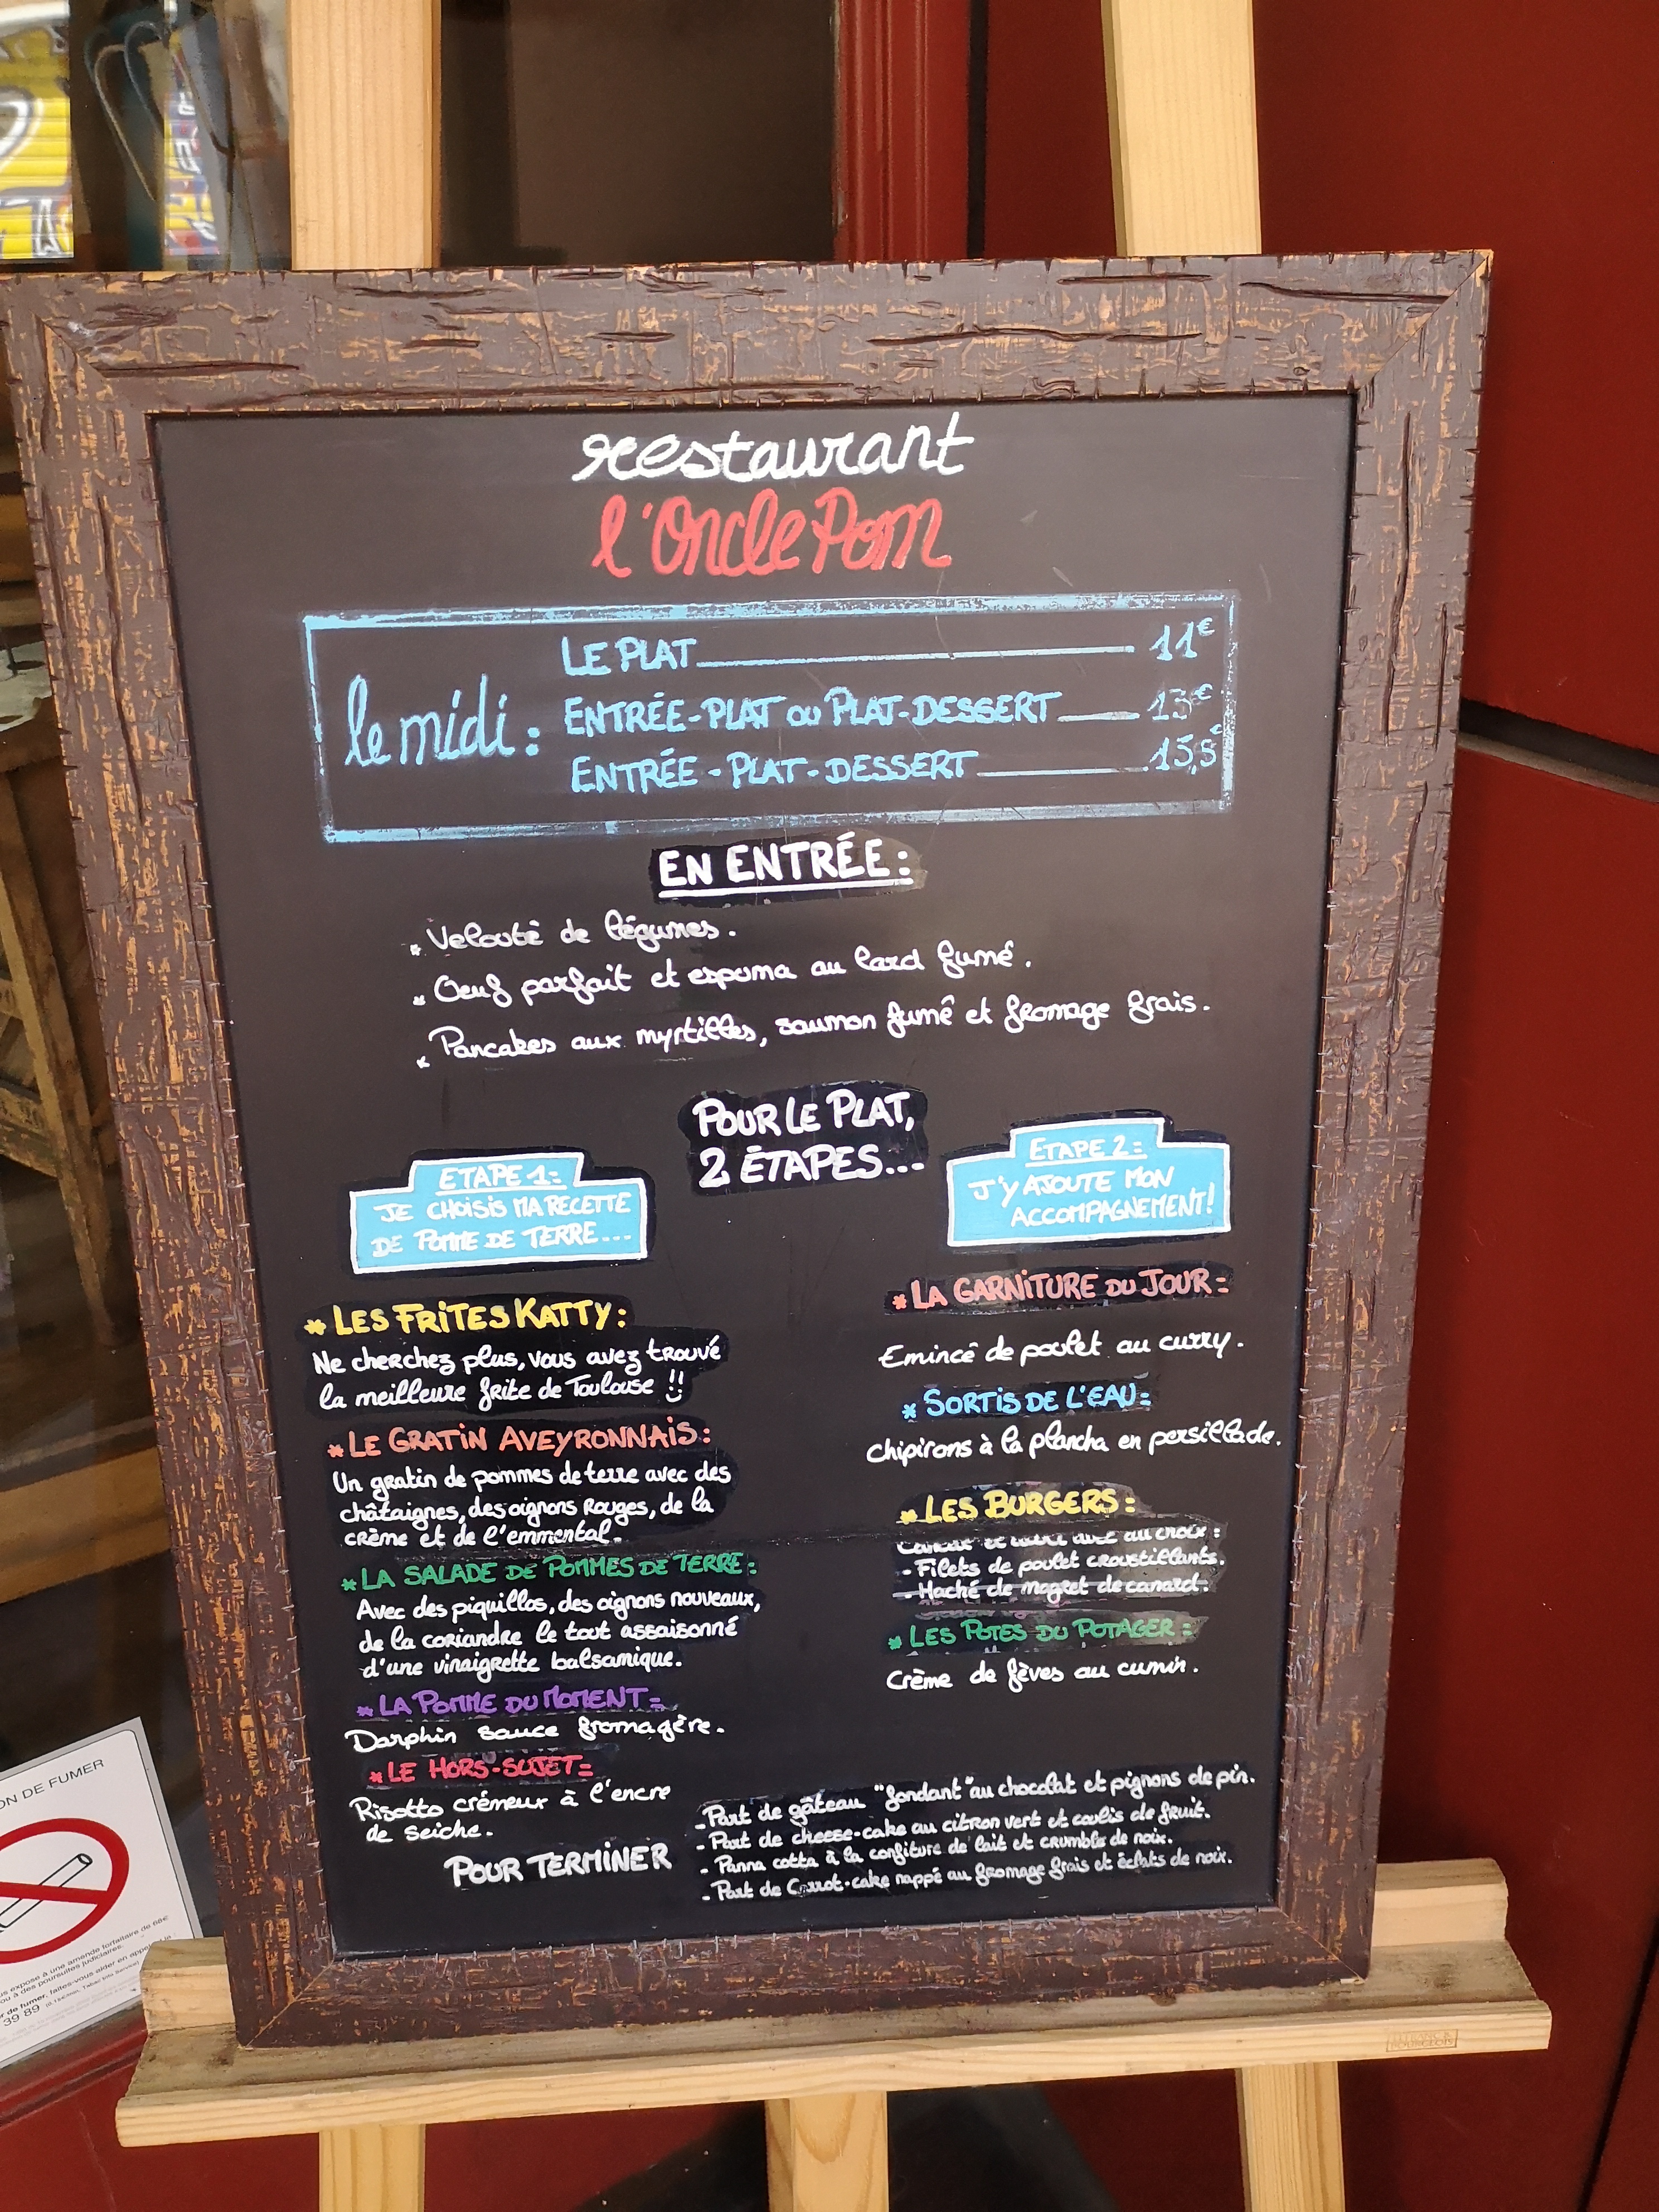 restaurant
l'Oncle Pom
le midi :
LE PLAT 11€
ENTRÉE-PLAT OU PLAT-DESSERT 13€
ENTRÉE-PLAT-DESSERT 15,5€
EN ENTRÉE :
* Velouté de légumes.
* Oeuf parfait et espuma au lard fumé.
* Pancakes aux myrtilles, saumon fumé et fromage frais.
POUR LE PLAT,
2 ÉTAPES...
ETAPE 1:
JE CHOISIS MA RECETTE
DE POMME DE TERRE...
* LES FRITES KATTY :
Ne cherchez plus, vous avez trouvé
la meilleure frite de Toulouse !!
* LE GRATIN AVEYRONNAIS :
Un gratin de pommes de terre avec des
châtaignes, des oignons rouges, de la
crème et de l'emmental.
* LA SALADE DE POMMES DE TERRE :
Avec des piquillos, des oignons nouveaux,
de la coriandre le tout assaisonné
d'une vinaigrette balsamique.
* LA POMME DU MOMENT :
Darphin sauce fromagère.
* LE HORS-SUJET :
Risotto crémeux à l'encre
de seiche.
ETAPE 2:
J'Y AJOUTE MON
ACCOMPAGNEMENT!
* LA GARNITURE DU JOUR :
Emincé de poulet au curry.
* SORTIS DE L'EAU :
Chipirons à la plancha en persillade.
* LES BURGERS :
avec au choix :
- Filets de poulet croustillants.
- Haché de magret de canard.
* LES POTES DU POTAGER :
Crème de fèves au cumin.
POUR TERMINER
- Part de gâteau "fondant" au chocolat et pignons de pin.
- Part de cheese-cake au citron vert et coulis de fruit.
- Panna cotta à la confiture de lait et crumble de noix.
- Part de Carrot-cake nappé au fromage frais et éclats de noix.
ON DE FUMER
expose à une amende forfaitaire de 68€
ou à des poursuites judiciaires.
de fumer, faites-vous aider en appelant le
39 89